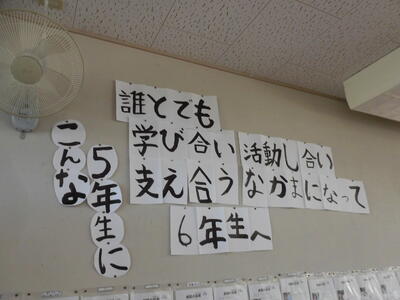 こんな
5年生に
誰とでも
学び合い
支え合う
活動し合い
なかまになって
6年生へ